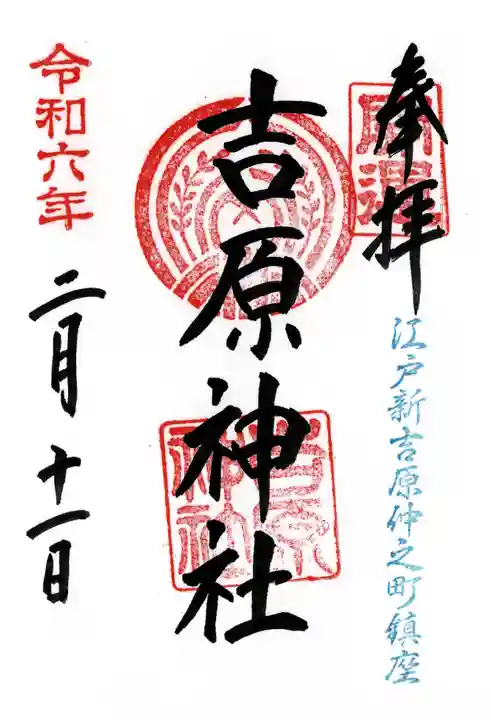 奉拝
江戸新吉原仲之町鎮座
吉原神社
吉原神社
令和六年
二月十一日